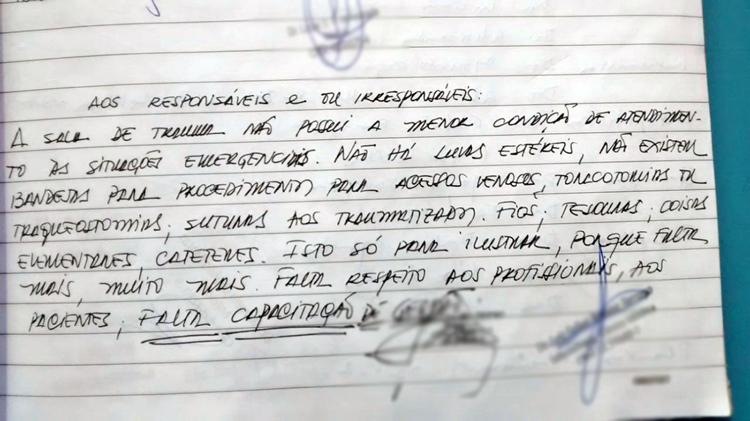 AOS RESPONSÁVEIS E OU IRRESPONSÁVEIS:
A SALA DE TRAUMA NÃO POSSUI A MENOR CONDIÇÃO DE ATENDIMEN-
TO ÀS SITUAÇÕES EMERGENCIAIS. NÃO HÁ LUVAS ESTÉREIS, NÃO EXISTEM
BANDEJAS PARA PROCEDIMENTOS PARA ACESSOS VENOSOS, TORACOTOMIAS OU
TRAQUEOSTOMIAS; SUTURAS AOS TRAUMATIZADOS. FIOS; TESOURAS; COISAS
ELEMENTARES, CATETERES. ISTO SÓ PARA ILUSTRAR, PORQUE FALTA
MAIS, MUITO MAIS. FALTA RESPEITO AOS PROFISSIONAIS, AOS
PACIENTES; FALTA CAPACITAÇÃO